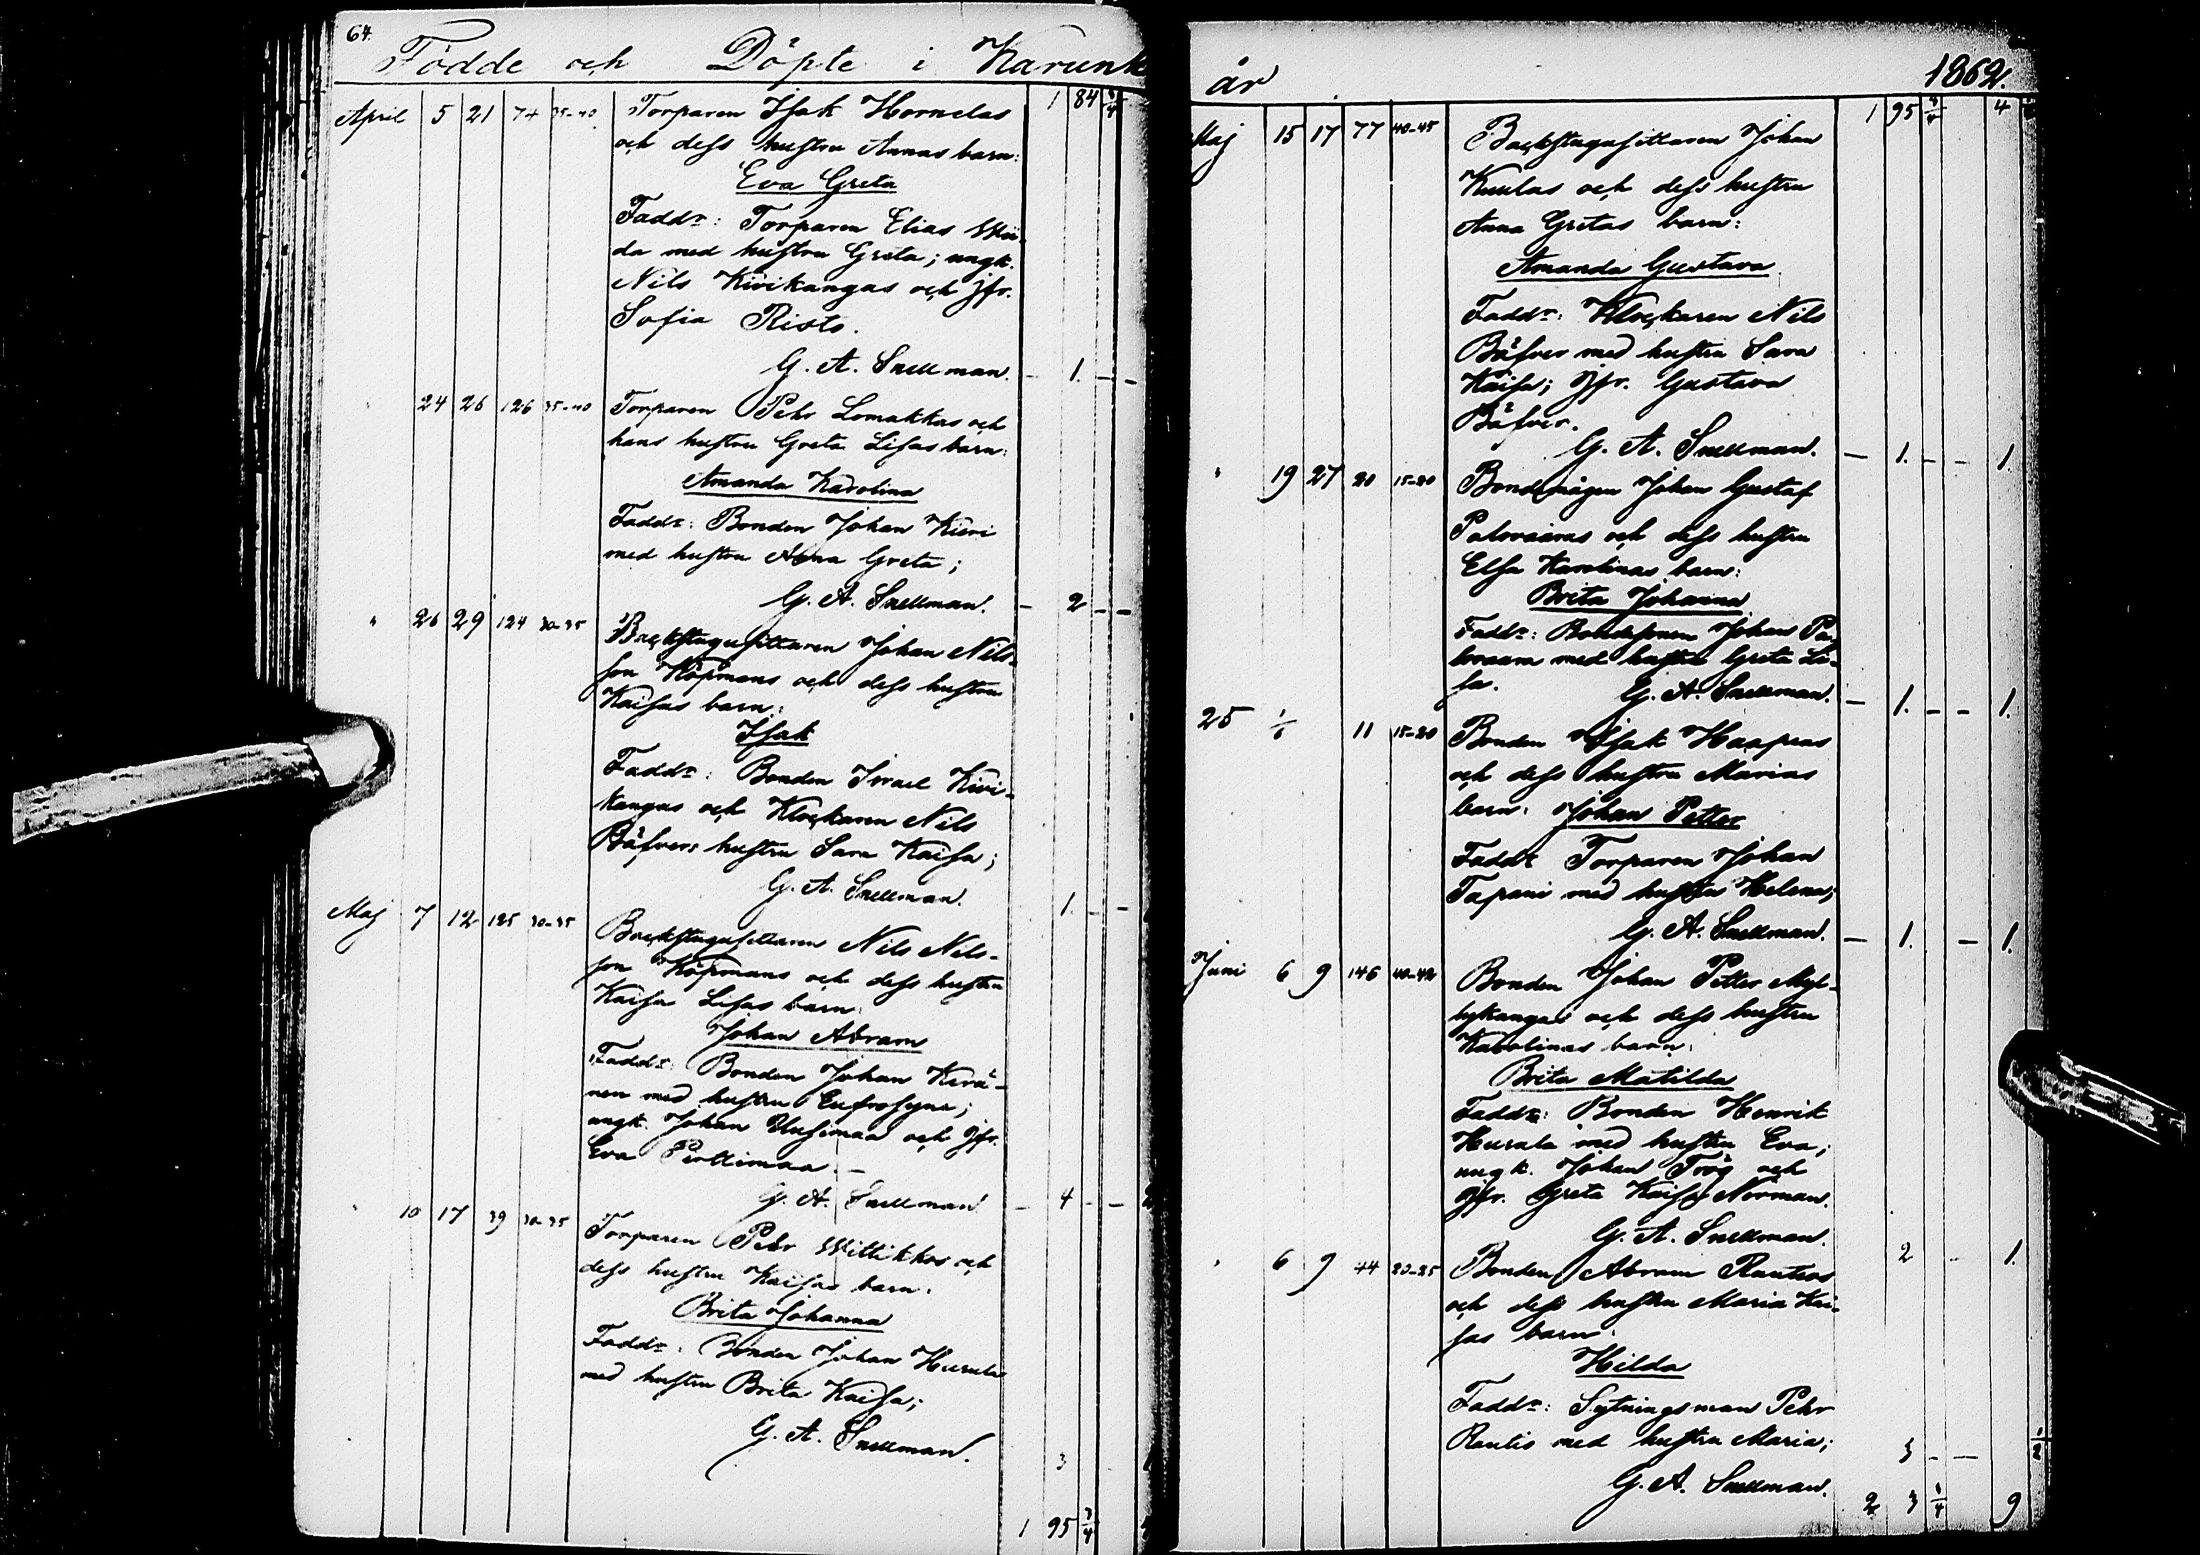 64.
Födde och Döpte i Karunk
April 5 21 74 35-40 Torparen Isak Hornelas 1 84 3/4
och dess hustru Annas barn:
Eva Greta
Faddr: Torparen Elias
da med hustru Greta; ungk.
Nils Kivikangas och jfr.
Sofia Risto.
G. A. Snellman. – 1. – –
" 24 26 126 35-40 Torparen Pehr Lomakkas och
hans hustru Greta Lisas barn:
Amanda Karolina
Faddr: Bonden Johan Kivi
med hustru Anna Greta;
G. A. Snellman. – 2 – –
" 26 29 124 30-35 Backstugusittaren Johan Nils-
son Köpmans och dess hustru
Kaisas barn:
Isak
Faddr: Bonden Israel Kivi-
kangas och Klockaren Nils
Bäfvers hustru Sara Kaisa;
G. A. Snellman. 1. – –
Maj 7 12 125 30-35 Backstugusittaren Nils Nils-
son Köpmans och dess hustru
Kaisa Lisas barn:
Johan Abram
Faddr: Bonden Johan Kerä-
nen med hustru Eufrosyne;
ungk. Johan Uusimaa och jfr.
Eva Perttimaa. –
G. A. Snellman – 4 – –
" 10 17 39 30-35 Torparen Pehr Wittikkos och
dess hustru Kaisas barn:
Brita Johanna
Faddr: Bonden Johan Hurula
med hustru Brita Kaisa;
G. A. Snellman. 3
1 95 3/4
år 1862.
Maj 15 17 77 40-45 Backstugusittaren Johan 1 95 3/4 4
Knulas och dess hustru
Anna Gretas barn:
Amanda Gustava
Faddr: Klockaren Nils
Bäfver med hustru Sara
Kaisa; jfr. Gustava
Bäfver.
G. A. Snellman. – 1. – – 1.
" 19 27 20 15-20 Bondemågen Johan Gustaf
Palovaaras och dess hustru
Elsa Karolinas barn:
Brita Johanna
Faddr: Bondesonen Johan Pa-
lovaara med hustru Greta Li-
sa. G. A. Snellman. – 1. – – 1.
25 1/6 11 15-20 Bonden Isak Haapas
och dess hustru Marias
barn: Johan Petter
Faddr Torparen Johan
Tapani med hustru Helena;
G. A. Snellman. – 1. – 1.
Juni 6 9 146 40-42 Bonden Johan Petter Myl-
lykangas och dess hustru
Karolinas barn:
Brita Matilda
Faddr: Bonden Henrik
Hurula med hustru Eva;
ungk. Johan Töög och
jfr. Greta Kaisa Norman.
G. A. Snellman. 2 – 1.
" 6 9 44 20-25 Bonden Abram Rautios
och dess hustru Maria Kai-
sas barn:
Hilda
Faddr: Sytningsman Pehr
Rautio med hustru Maria; 3 – – 1/2
G. A. Snellman.
2 3 3/4 9